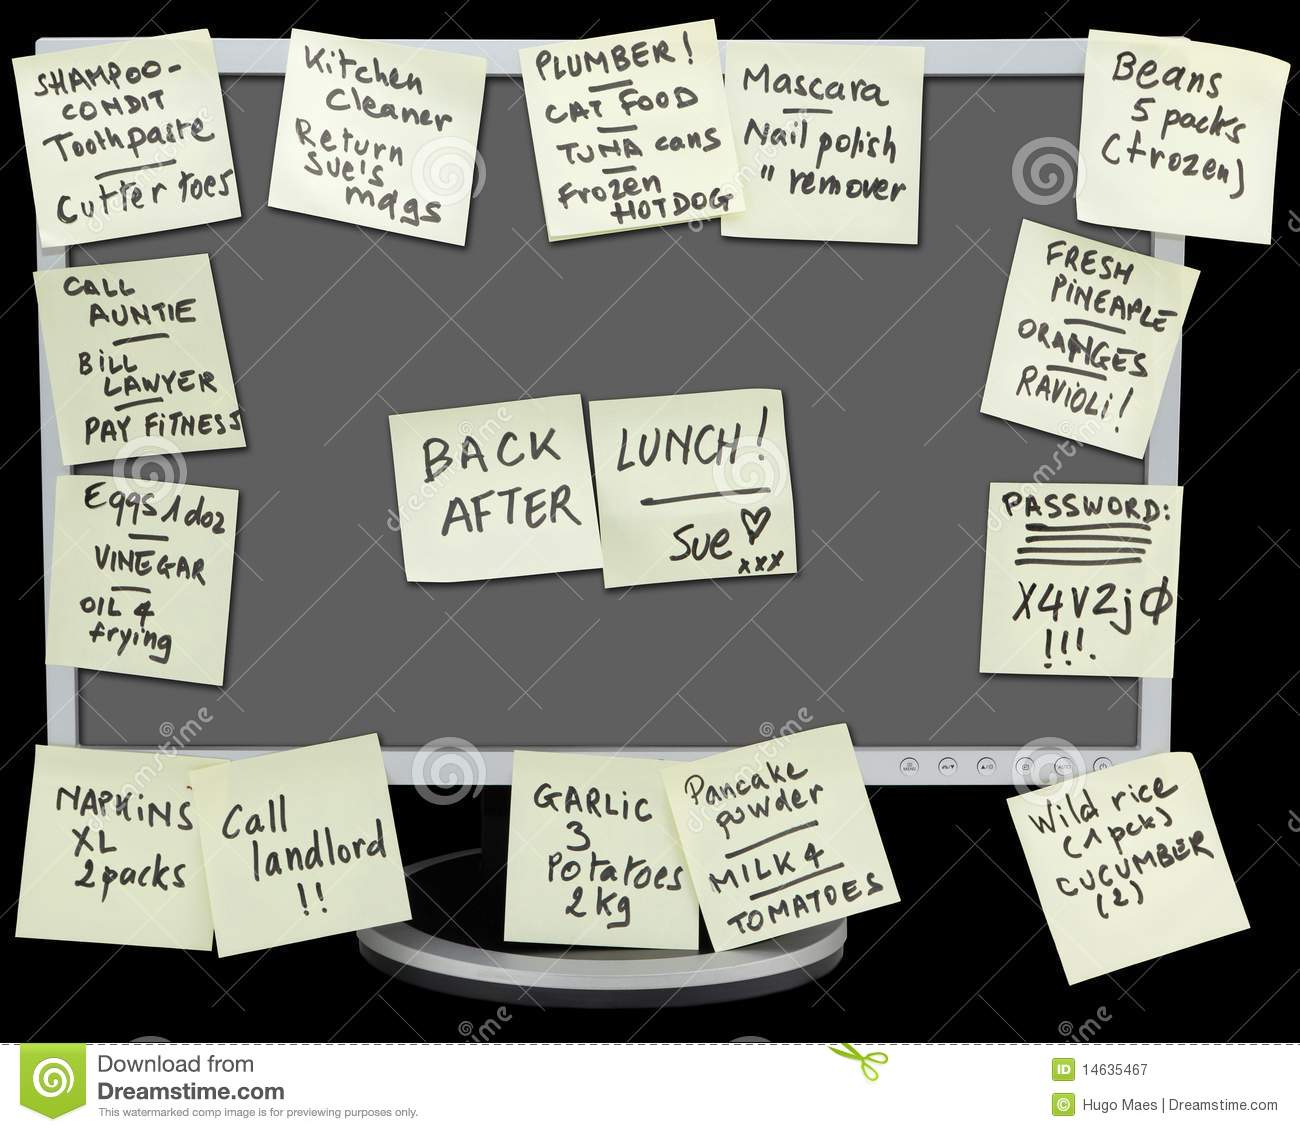 SHAMPOO-
CONDIT
Toothpaste
Cutter toes
Kitchen
Cleaner
Return
Sue's
mags
PLUMBER!
CAT FOOD
TUNA cans
Frozen
HOTDOG
Mascara
Nail polish
" remover
Beans
5 packs
(frozen)
CALL
AUNTIE
BILL
LAWYER
PAY FITNESS
FRESH
PINEAPLE
ORANGES
RAVIOLI!
BACK
AFTER
LUNCH!
Sue ♡
xxx
Eggs 1 doz
VINEGAR
OIL 4
frying
PASSWORD:
X4V2jØ
!!!.
NAPKINS
XL
2 packs
Call
landlord
!!
GARLIC
3
Potatoes
2kg
Pancake
powder
MILK 4
TOMATOES
Wild rice
(1 pck)
CUCUMBER
(2)
MENU
AUTO
dreamstime
Download from
Dreamstime.com
This watermarked comp image is for previewing purposes only.
ID 14635467
© Hugo Maes | Dreamstime.com